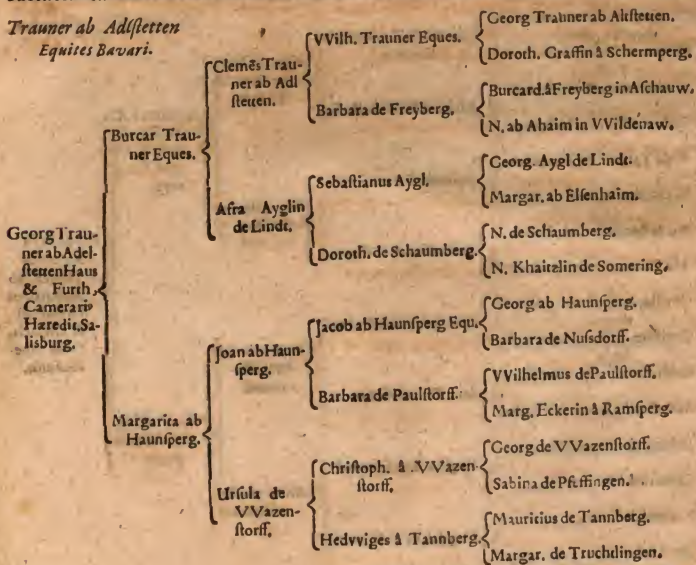 Trauner ab Adlſtetten
Equites Bavari.
Georg Trau-
ner ab Adel-
ſtetten Haus
& Furth,
Camerari⁹
Hæredit. Sa-
lisburg.
Burcar Trau-
ner Eques.
Margarita ab
Haunſperg.
Clemẽs Trau-
ner ab Adl
ſtetten.
Afra Ayglin
de Lindt.
Joan ab Haun-
ſperg.
Urſula de
VVazen-
ſtorff.
VVilh. Trauner Eques.
Barbara de Freyberg.
Sebaſtianus Aygl.
Doroth. de Schaumberg.
Jacob ab Haunſperg Equ.
Barbara de Paulſtorff.
Chriſtoph. à VVazen-
ſtorff.
Hedvviges à Tannberg.
Georg Trauner ab Altſtetten.
Doroth. Graffin à Schermperg.
Burcard. à Freyberg in Aſchauw.
N. ab Ahaim in VVildenaw.
Georg. Aygl de Lindt.
Margar. ab Elſenhaim.
N. de Schaumberg.
N. Khaitzlin de Somering.
Georg ab Haunſperg.
Barbara de Nuſsdorff.
VVilhelmus de Paulſtorff.
Marg. Eckerin à Ramſperg.
Georg de VVazenſtorff.
Sabina de Pfeffingen.
Mauritius de Tannberg.
Margar. de Truchtlingen.